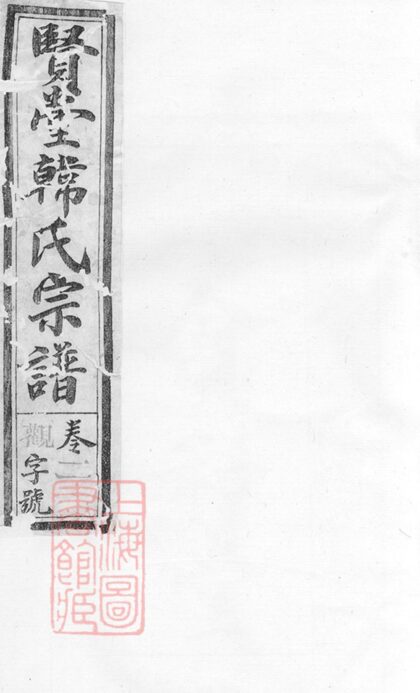 賢臺韓氏宗譜
卷二
觀字號
上海圖
書館藏